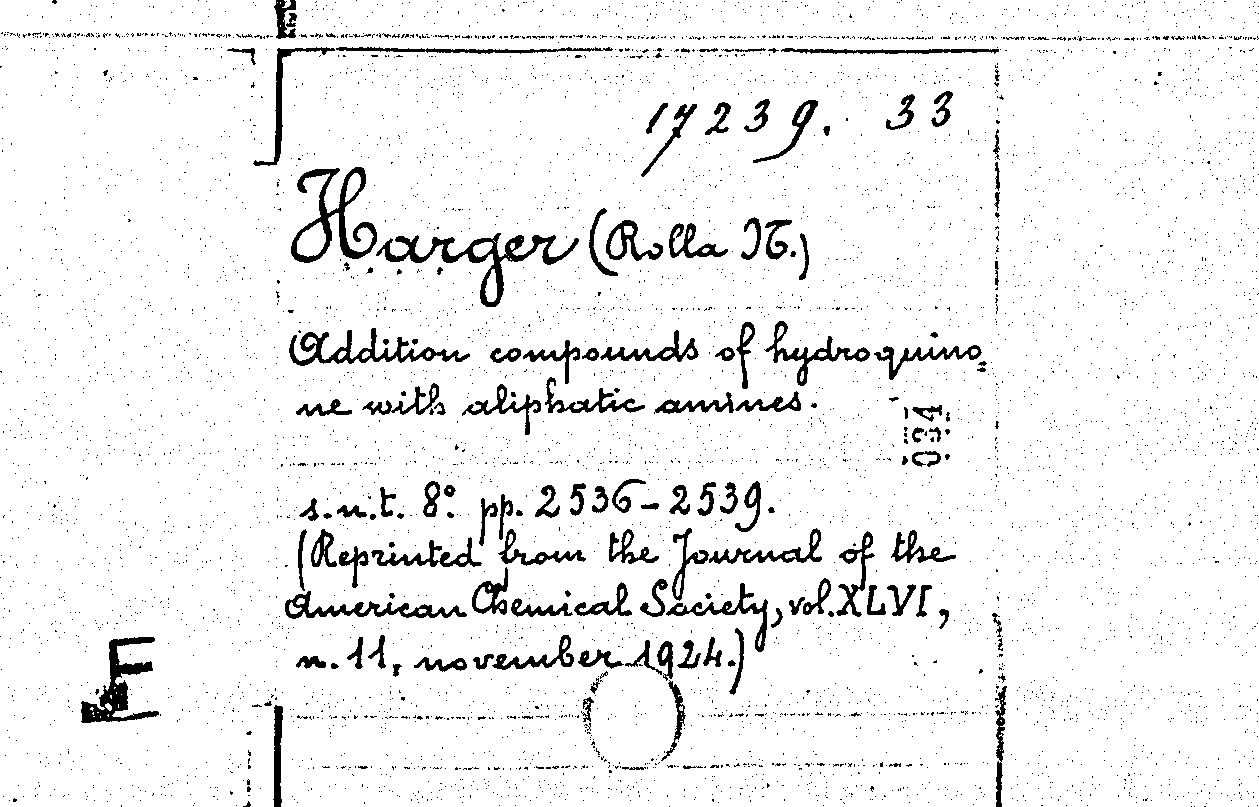 17239. 33
Harger (Rolla N.)
Addition compounds of hydroquino=
ne with aliphatic amines.
034
s.n.t. 8º. pp. 2536-2539.
(Reprinted from the Journal of the
American Chemical Society, vol. XLVI,
n. 11, november 1924.)
E